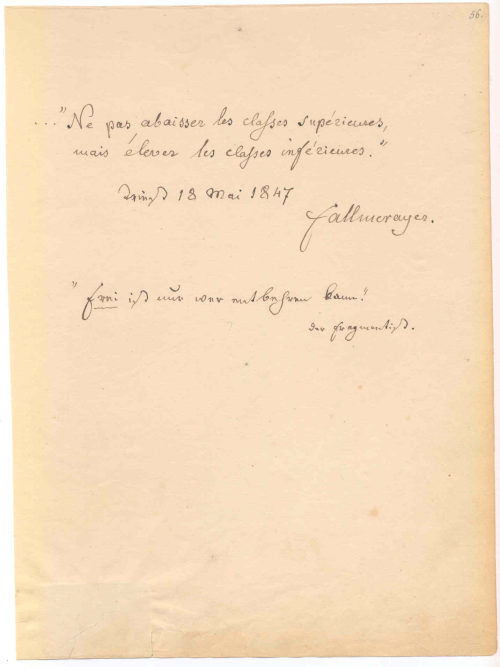 56.
..."Ne pas abaisser les classes supérieures,
mais élever les classes inférieures."
18 Mai 1847
Fallmerayer.
"Frei ist nur wer entbehren kann."
der Fragmentist.